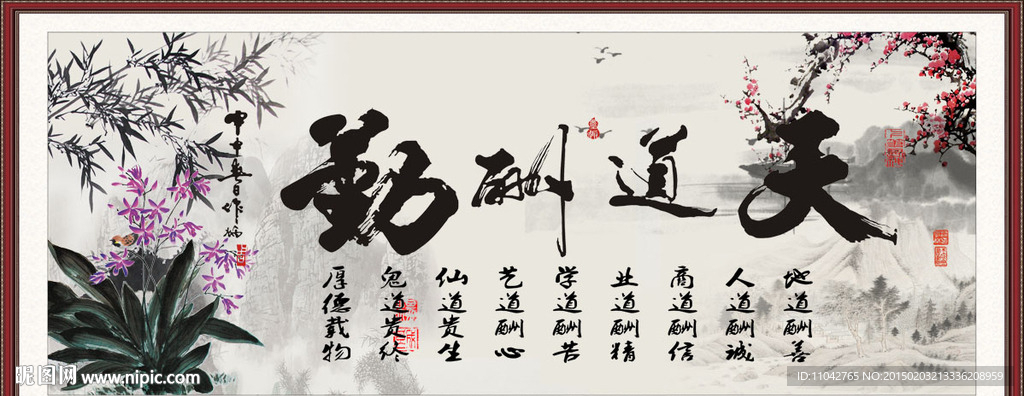 天道酬勤
地道酬善
人道酬诚
商道酬信
业道酬精
学道酬苦
艺道酬心
仙道贵生
鬼道贵终
厚德载物
昵图网 www.nipic.com
ID:11042765 NO:20150203213336208959